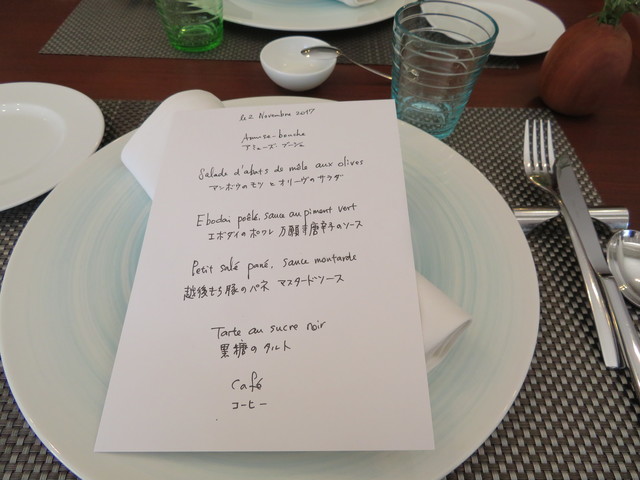 le 2 Novembre 2017
Amuse-bouche
アミューズ・ブーシュ
Salade d'abats de môle aux olives
マンボウのモツとオリーヴのサラダ
Ebodai poêlé, sauce au piment vert
エボダイのポワレ 万願寺唐辛子のソース
Petit salé pané, sauce moutarde
越後もち豚のパネ マスタードソース
Tarte au sucre noir
黒糖のタルト
Café
コーヒー